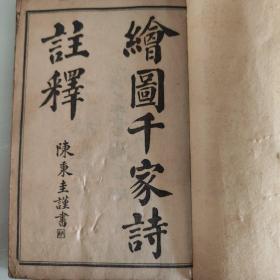 繪圖千家詩
註釋
陳秉圭謹書